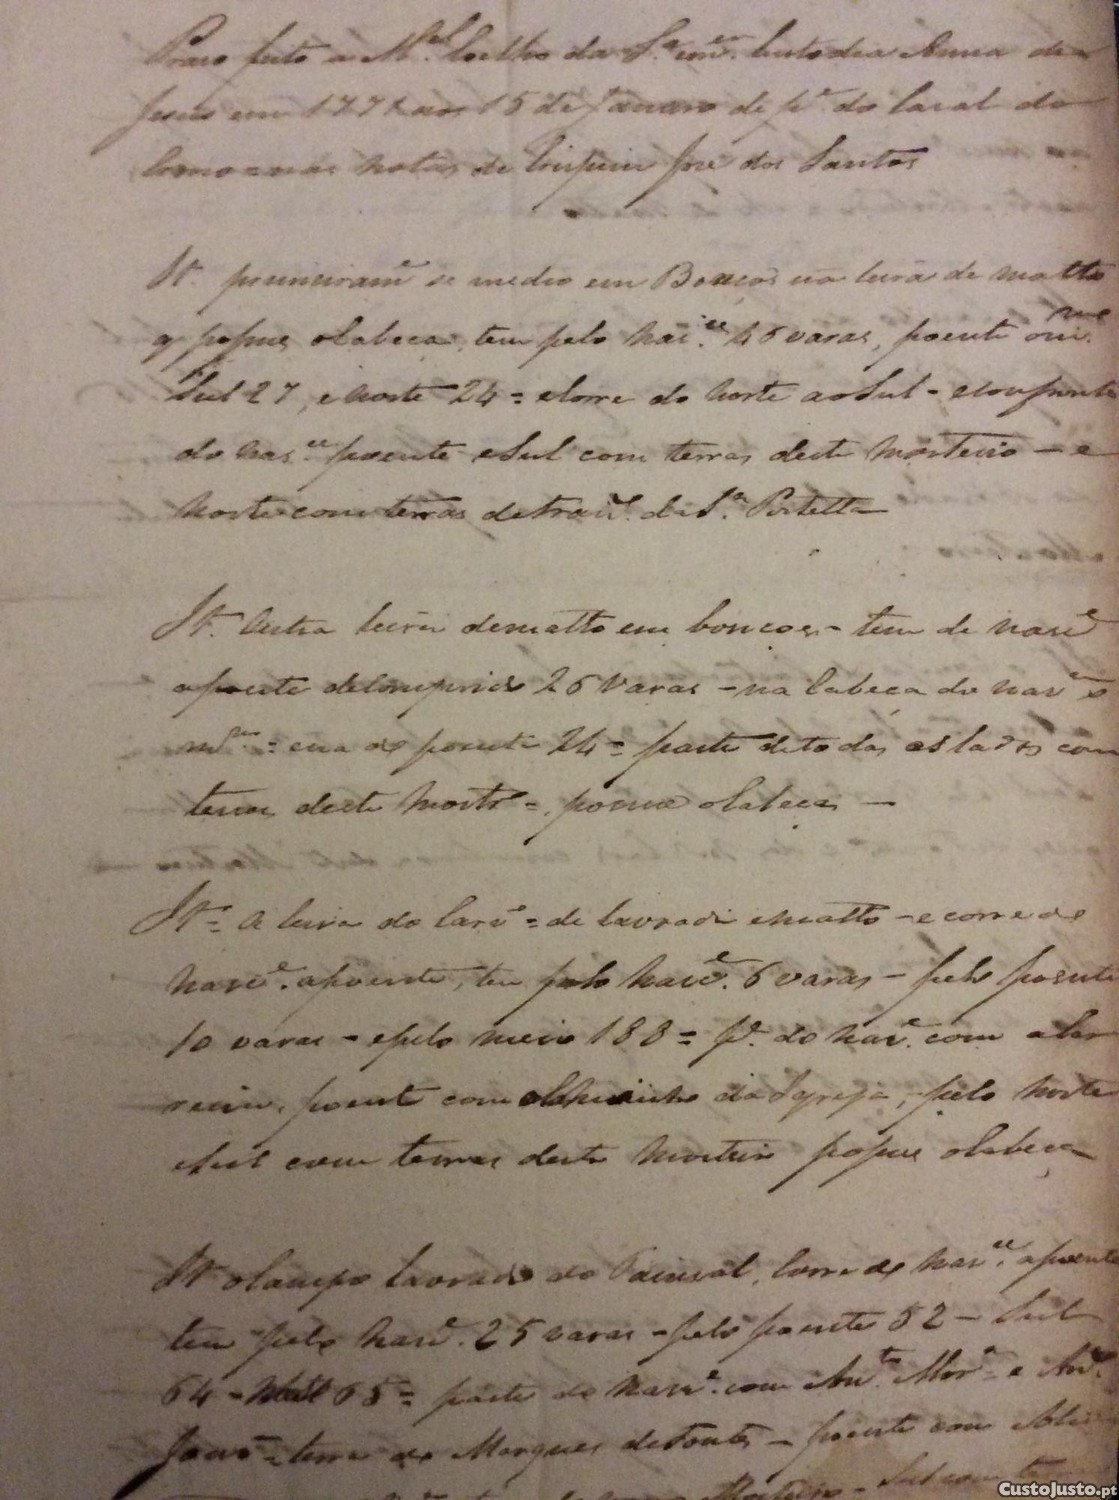 Praso feito a M.el Coelho da S.a e m.er Custodia Anna de
Jesus em 1771 aos 15 de Janeiro de do Casal do
notas de Crispim Jose dos Santos
It. primeiram.e se medio em Bouças ua leira de matto
q popus o Cabeca, tem pelo nas.ce 46 varas, poente o m.mo
Sul 27, e Norte 24 = e Corre do Norte ao Sul - e confronta
do nas.ce poente e Sul com terras deste Mosteiro - e
Norte com terras de Fran.co da S.a Portella
It. Outra leira de matto em bouças - tem de nasc.e
a poente de Comprido 26 Varas - na Cabeça do nas.ce o
m.mo = e na do poente 24 = parte de todos os lados com
terras deste Mostr.o = popus o Cabeca -
It = A leira do = de lavradio e matto - e corre de
nasc.e a poente, tem pelo nasc.e 6 varas - pelo poente
10 varas - e pelo meio 188 = P.e do nas.e com
poente com o Caminho da Igreja, pelo Norte
e Sul com terras deste Mosteiro popus o Cabeca
It o Campo lavradio do Corre de nas.ce a poente
tem pelo nasc.e 25 varas - pelo poente 52 - Sul
64 - Norte 65 = parte do nasc.e com An.to Mor.a e An.to
= terra do Marques de Fontes - poente com
Mosteiro - Sul com terras
CustoJusto.pt